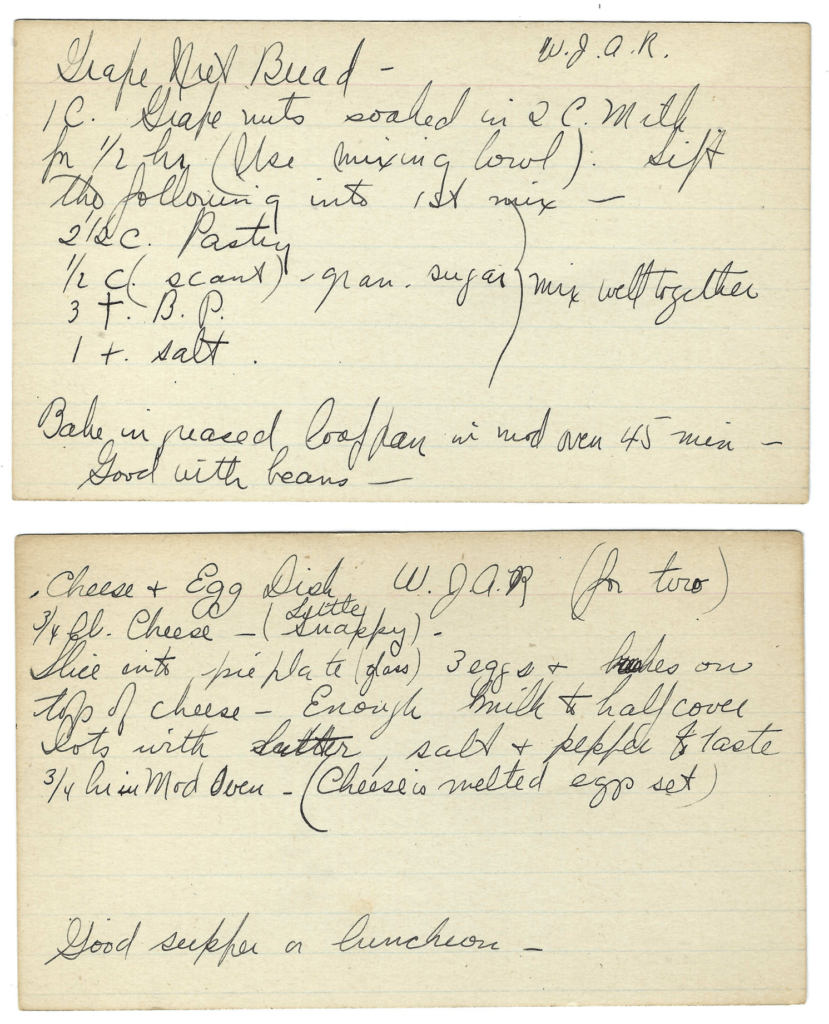 Grape Nut Bread - W.J.A.R.
1 C. Grape nuts soaked in 2 C. Milk
for 1/2 hr (Use mixing bowl). Sift
the following into 1st mix -
2 1/2 C. Pastry
1/2 C. (scant) - gran. sugar
mix well together
3 t. B.P.
1 t. salt.
Bake in greased loaf pan in mod oven 45 min -
Good with beans -
Cheese + Egg Dish W.J.A.R (for two)
3/4 lb. Cheese - (Little Snappy) -
Slice into pie plate (glass) 3 eggs + on
top of cheese - Enough milk to half cover
Dots with butter, salt + pepper to taste
3/4 hr in Mod Oven - (Cheese is melted eggs set)
Good supper or luncheon -